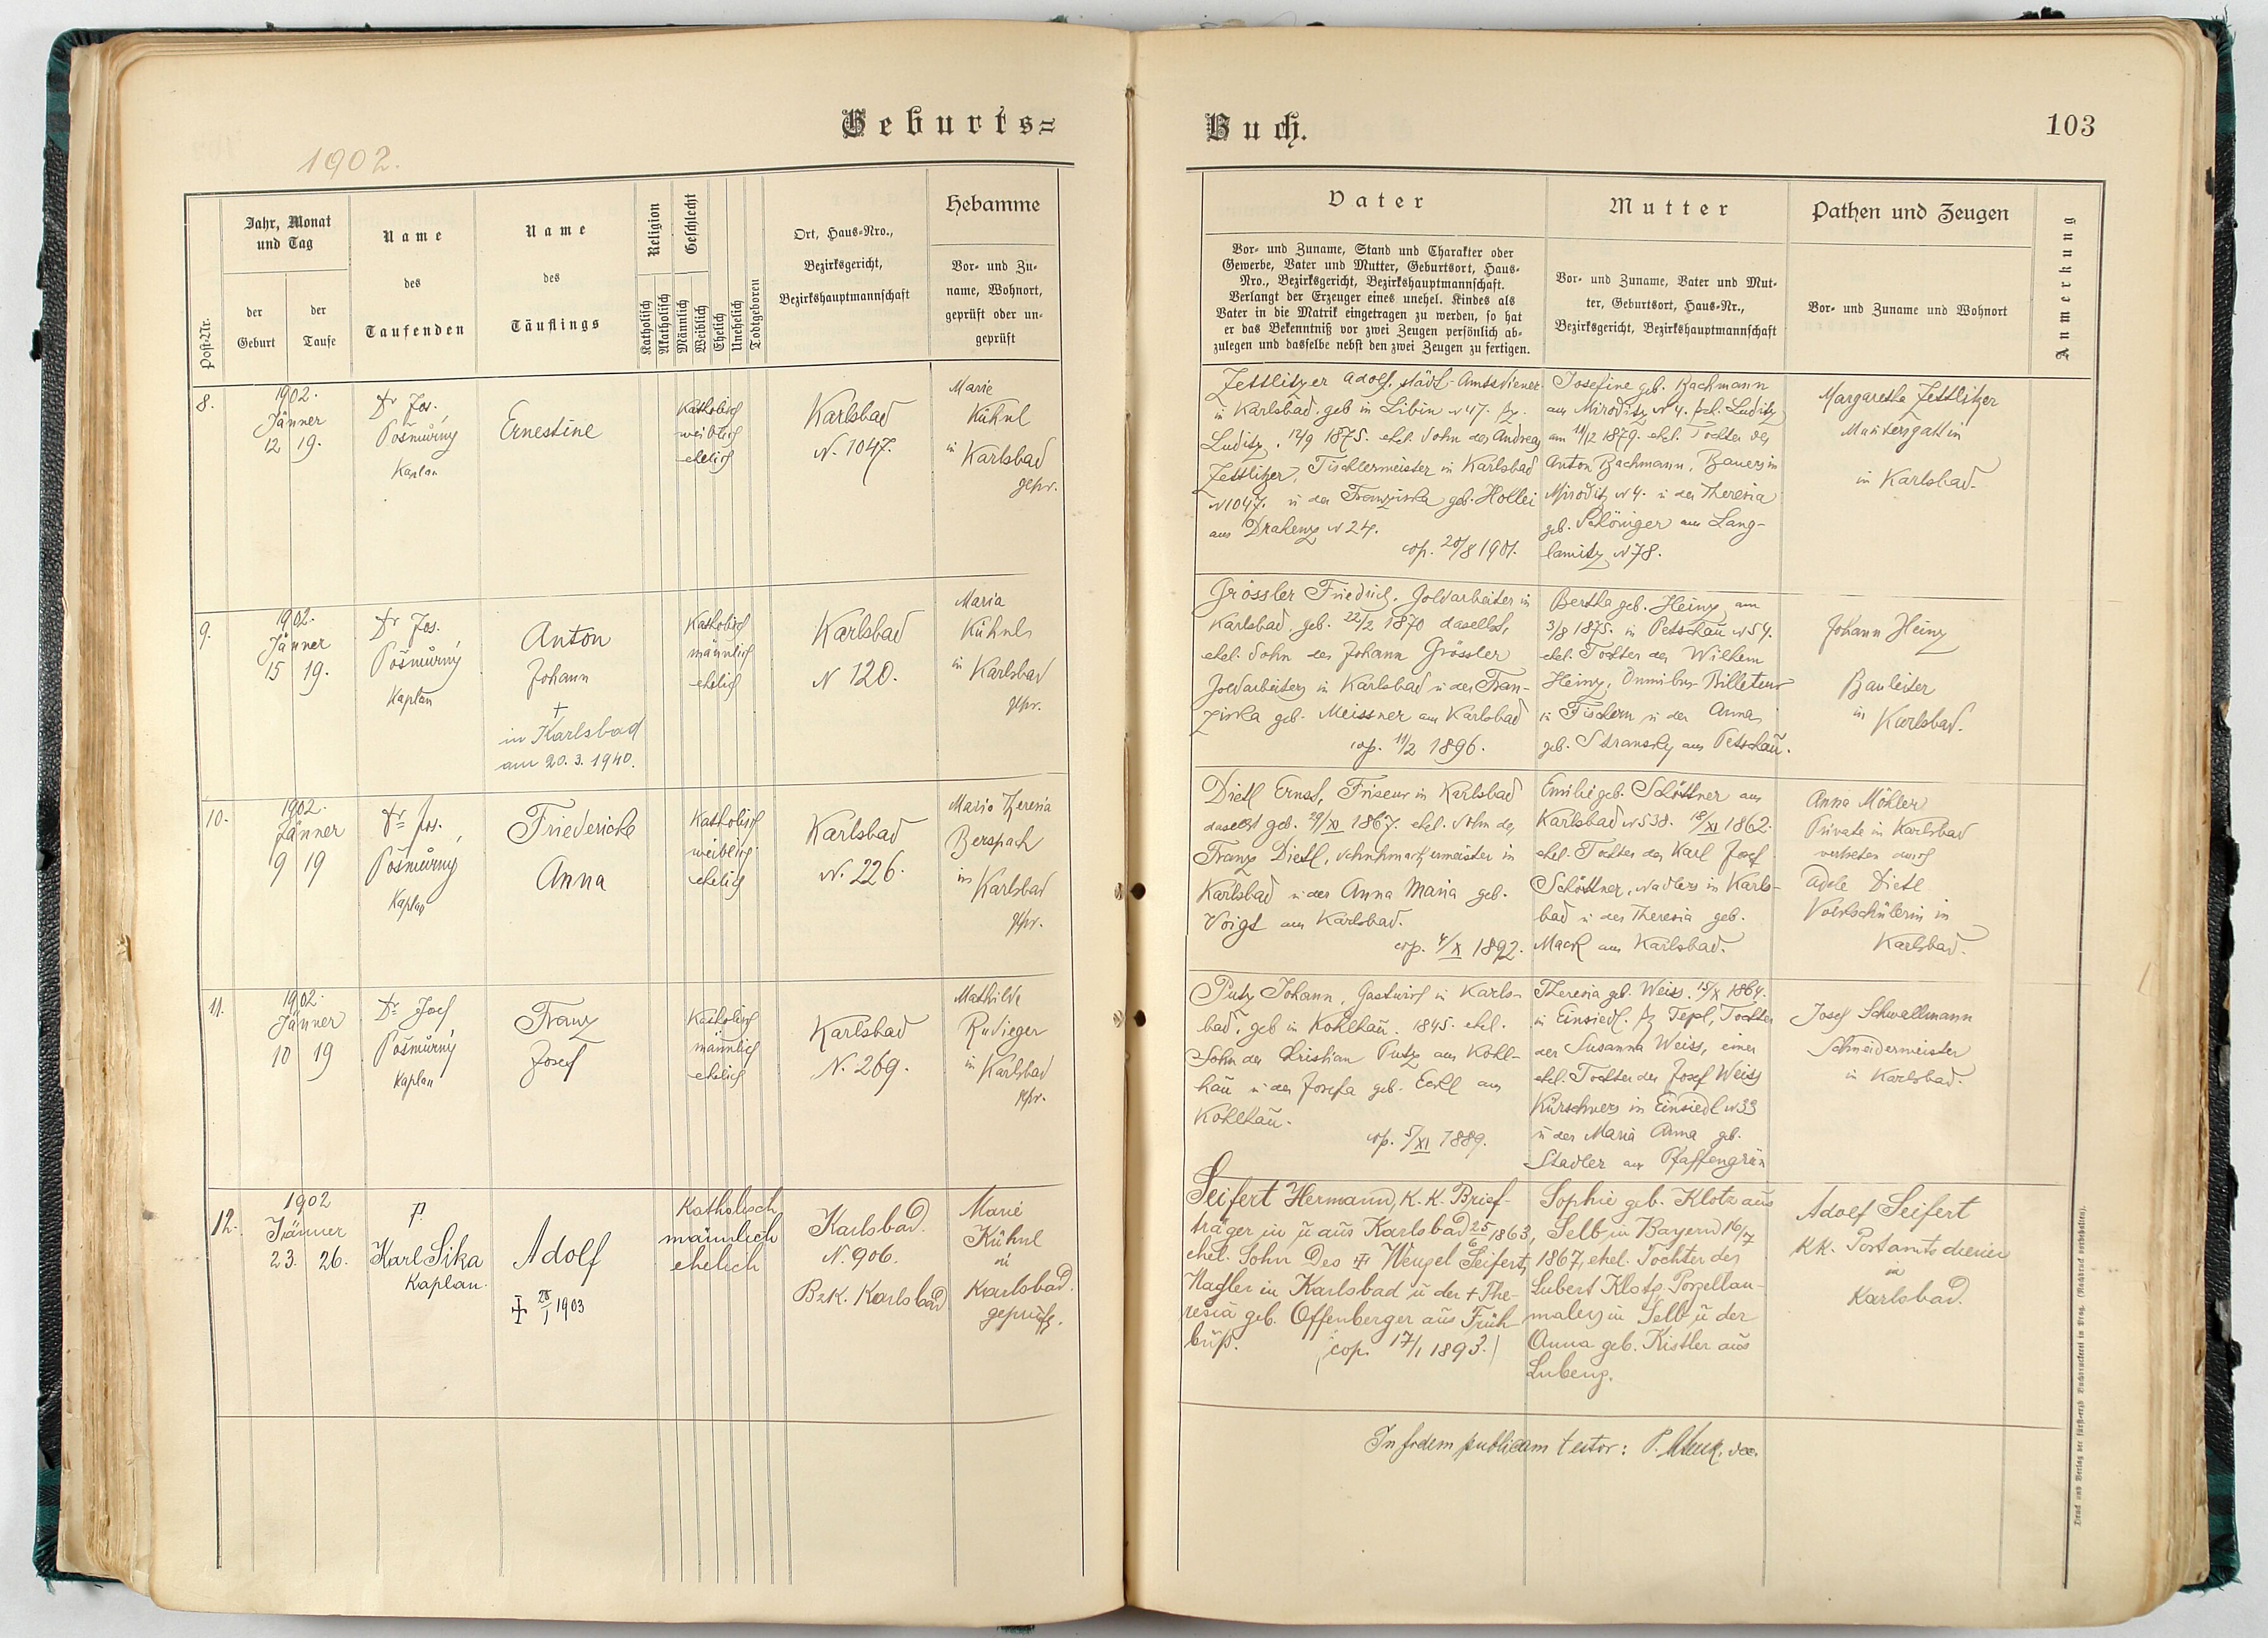 Geburts=
Buch.
103
1902.
Post-Nr.
Jahr, Monat
und Tag
der
Geburt
der
Taufe
Name
des
Taufenden
Name
des
Täuflings
Religion
Katholisch
Akatholisch
Geschlecht
Männlich
Weiblich
Ehelich
Unehelich
Todtgeboren
Ort, Haus-Nro.,
Bezirksgericht,
Bezirkshauptmannschaft
Hebamme
Vor- und Zu-
name, Wohnort,
geprüft oder un-
geprüft
Vater
Vor- und Zuname, Stand und Charakter oder
Gewerbe, Vater und Mutter, Geburtsort, Haus-
Nro., Bezirksgericht, Bezirkshauptmannschaft.
Verlangt der Erzeuger eines unehel. Kindes als
Vater in die Matrik eingetragen zu werden, so hat
er das Bekenntniß vor zwei Zeugen persönlich ab-
zulegen und dasselbe nebst den zwei Zeugen zu fertigen.
Mutter
Vor- und Zuname, Vater und Mut-
ter, Geburtsort, Haus-Nr.,
Bezirksgericht, Bezirkshauptmannschaft
Pathen und Zeugen
Vor- und Zuname und Wohnort
Anmerkung
8.
1902.
Jänner
12 19.
Dr Jos.
Pošmůrný
Kaplan
Ernestine
Katholisch
weiblich
ehelich
Karlsbad
N. 1047.
Marie
Kühnl
in Karlsbad
gepr.
Zettlitzer Adolf, städt. Amtsdiener
in Karlsbad, geb in Libin N 47. Bz.
Luditz, 12/9 1875. ehel. Sohn des Andreas
Zettlitzer, Tischlermeister in Karlsbad
N 1047. u der Franziska geb. Hollei
aus Drahenz N 24.
cop. 20/8 1901.
Josefine geb. Bachmann
aus Miroditz N 4. Bzk. Luditz
am 11/12 1879. ehel. Tochter des
Anton Bachmann, Bauers in
Miroditz N 4. u der Theresia
geb. Schöniger aus Lang-
lamitz N 78.
Margaretha Zettlitzer
in Karlsbad.
9.
1902.
Jänner
15 19.
Dr Jos.
Pošmůrný
Kaplan
Anton
Johann
+
in Karlsbad
am 20. 3. 1940.
Katholisch
männlich
ehelich
Karlsbad
N 120.
Maria
Kühnl
in Karlsbad
gepr.
Grössler Friedrich, Goldarbeiter in
Karlsbad, geb. 22/2 1870 daselbst,
ehel. Sohn des Johann Grössler
Goldarbeiters in Karlsbad u der Fran-
ziska geb. Meissner aus Karlsbad
cop. 11/2 1896.
Bertha geb. Heinz, am
3/8 1875. in Petschau N 54.
ehel. Tochter des Wilhelm
Heinz, Omnibus Billeteur
in Fischern u der Anna
geb. Stransky aus Petschau.
Johann Heinz
Bauleiter
in Karlsbad.
10.
1902.
Jänner
9 19
Dr Jos.
Pošmůrný
Kaplan
Friedericke
Anna
Katholisch
weiblich
ehelich
Karlsbad
N. 226.
Maria Theresia
Berspach
in Karlsbad
gepr.
Dietl Ernst, Friseur in Karlsbad
daselbst geb. 29/XI 1867. ehel. Sohn des
Franz Dietl, Schuhmachermeister in
Karlsbad u der Anna Maria geb.
Voigt aus Karlsbad.
cop. 4/X 1892.
Emilie geb. Schöttner aus
Karlsbad N 538. 18/XI 1862.
ehel. Tochter des Karl Josef
Schöttner, Nadlers in Karls-
bad u der Theresia geb.
Mack aus Karlsbad.
Anna Möhler
Private in Karlsbad
vertreten durch
Adele Dietl
Volksschülerin in
Karlsbad.
11.
1902.
Jänner
10 19
Dr Josef
Pošmůrný
Kaplan
Franz
Josef
Katholisch
männlich
ehelich
Karlsbad
N. 269.
Mathilde
Rudieger
in Karlsbad
gepr.
Putz Johann, Gastwirt in Karls-
bad, geb in Kohlhau. 1845. ehel.
Sohn des Christian Putz aus Kohl-
hau u der Josefa geb. Eckl aus
Kohlhau.
cop. 5/XI 1889.
Theresia geb. Weiss. 15/X 1864.
in Einsiedl. Bz Tepl, Tochter
der Susanna Weiss, einer
ehel. Tochter des Josef Weiss
Kürschners in Einsiedl N 33
u der Maria Anna geb.
Stadler aus Pfaffengrün
Josef Schwallmann
Schneidermeister
in Karlsbad.
12.
1902
Jänner
23. 26.
P.
Karl Sika
Kaplan.
Adolf
+ 28/1 1903
Katholisch
männlich
ehelich
Karlsbad.
N. 906.
Bzk. Karlsbad
Marie
Kühnl
in
Karlsbad.
geprüft.
Seifert Hermann, K. K. Brief-
träger in u aus Karlsbad 25/6 1863,
ehel. Sohn des + Wenzel Seifert,
Nagler in Karlsbad u der + The-
resia geb. Offenberger aus Früh-
buß. (cop. 17/1 1893.)
Sophie geb. Klotz aus
Selb in Bayern 16/7
1867, ehel. Tochter des
Lubert Klotz, Porzellan-
malers in Selb u der
Anna geb. Kistler aus
Lubenz.
Adolf Seifert
KK. Postamtsdiener
in
Karlsbad.
In fidem publicam testor:
Druck und Verlag der fürst-erzb. Buchdruckerei in Prag. (Nachdruck vorbehalten).